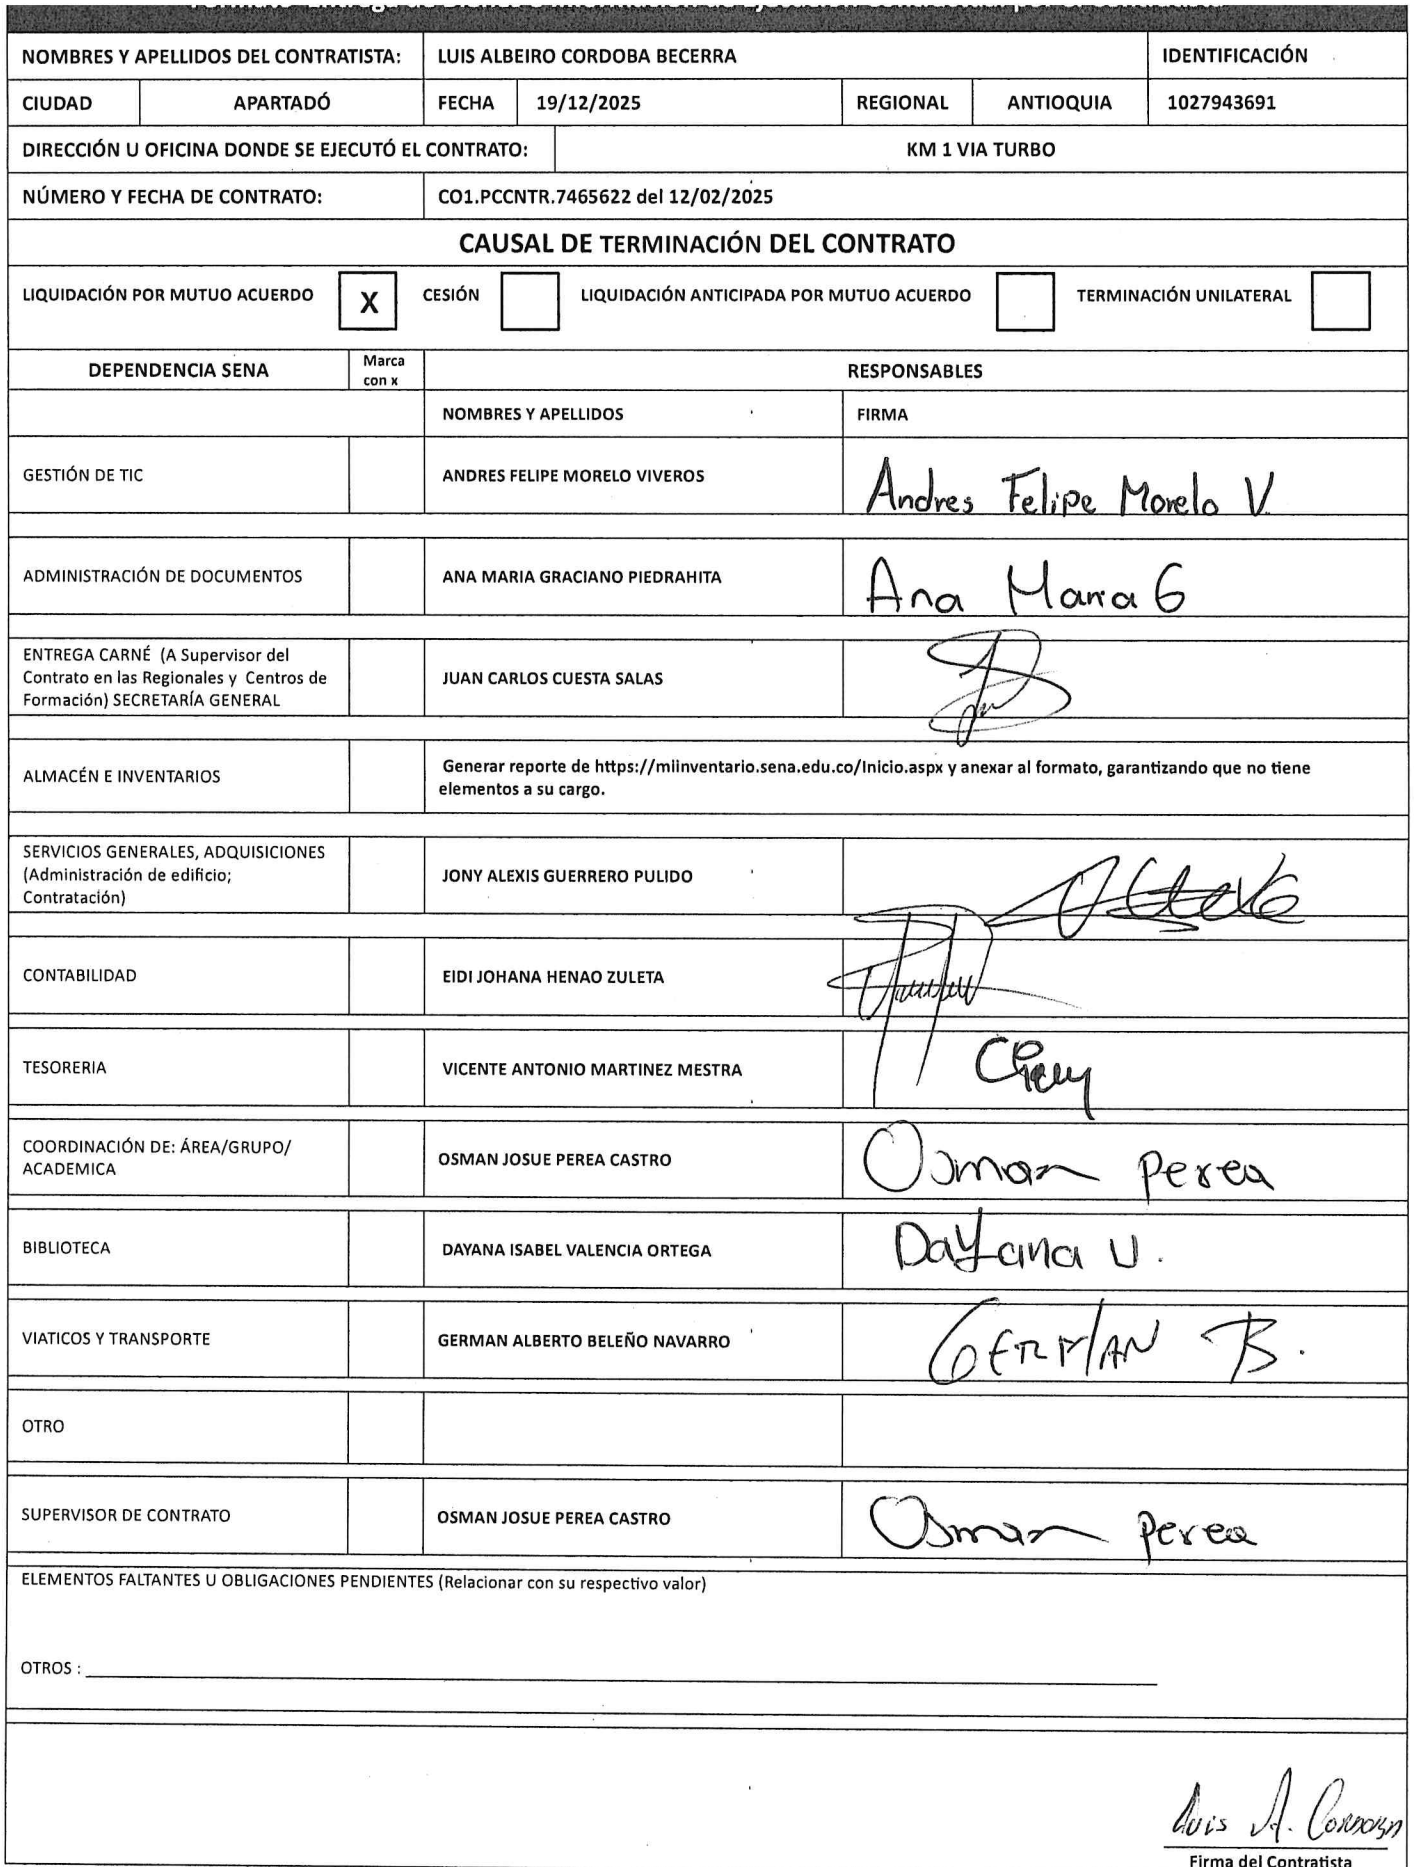 NOMBRES Y APELLIDOS DEL CONTRATISTA: LUIS ALBEIRO CORDOBA BECERRA IDENTIFICACIÓN
CIUDAD APARTADÓ FECHA 19/12/2025 REGIONAL ANTIOQUIA 1027943691
DIRECCIÓN U OFICINA DONDE SE EJECUTÓ EL CONTRATO: KM 1 VIA TURBO
NÚMERO Y FECHA DE CONTRATO: CO1.PCCNTR.7465622 del 12/02/2025
CAUSAL DE TERMINACIÓN DEL CONTRATO
LIQUIDACIÓN POR MUTUO ACUERDO X CESIÓN LIQUIDACIÓN ANTICIPADA POR MUTUO ACUERDO TERMINACIÓN UNILATERAL
DEPENDENCIA SENA Marca con x RESPONSABLES
NOMBRES Y APELLIDOS FIRMA
GESTIÓN DE TIC ANDRES FELIPE MORELO VIVEROS Andres Felipe Morelo V.
ADMINISTRACIÓN DE DOCUMENTOS ANA MARIA GRACIANO PIEDRAHITA Ana Maria G
ENTREGA CARNÉ (A Supervisor del
Contrato en las Regionales y Centros de
Formación) SECRETARÍA GENERAL
JUAN CARLOS CUESTA SALAS
ALMACÉN E INVENTARIOS
Generar reporte de https://miinventario.sena.edu.co/Inicio.aspx y anexar al formato, garantizando que no tiene
elementos a su cargo.
SERVICIOS GENERALES, ADQUISICIONES
(Administración de edificio;
Contratación)
JONY ALEXIS GUERRERO PULIDO
CONTABILIDAD EIDI JOHANA HENAO ZULETA
TESORERIA VICENTE ANTONIO MARTINEZ MESTRA
COORDINACIÓN DE: ÁREA/GRUPO/
ACADEMICA
OSMAN JOSUE PEREA CASTRO Osman Perea
BIBLIOTECA DAYANA ISABEL VALENCIA ORTEGA Dayana V.
VIATICOS Y TRANSPORTE GERMAN ALBERTO BELEÑO NAVARRO GERMAN B.
OTRO
SUPERVISOR DE CONTRATO OSMAN JOSUE PEREA CASTRO Osman Perea
ELEMENTOS FALTANTES U OBLIGACIONES PENDIENTES (Relacionar con su respectivo valor)
OTROS :
Luis A. Cordoba
Firma del Contratista